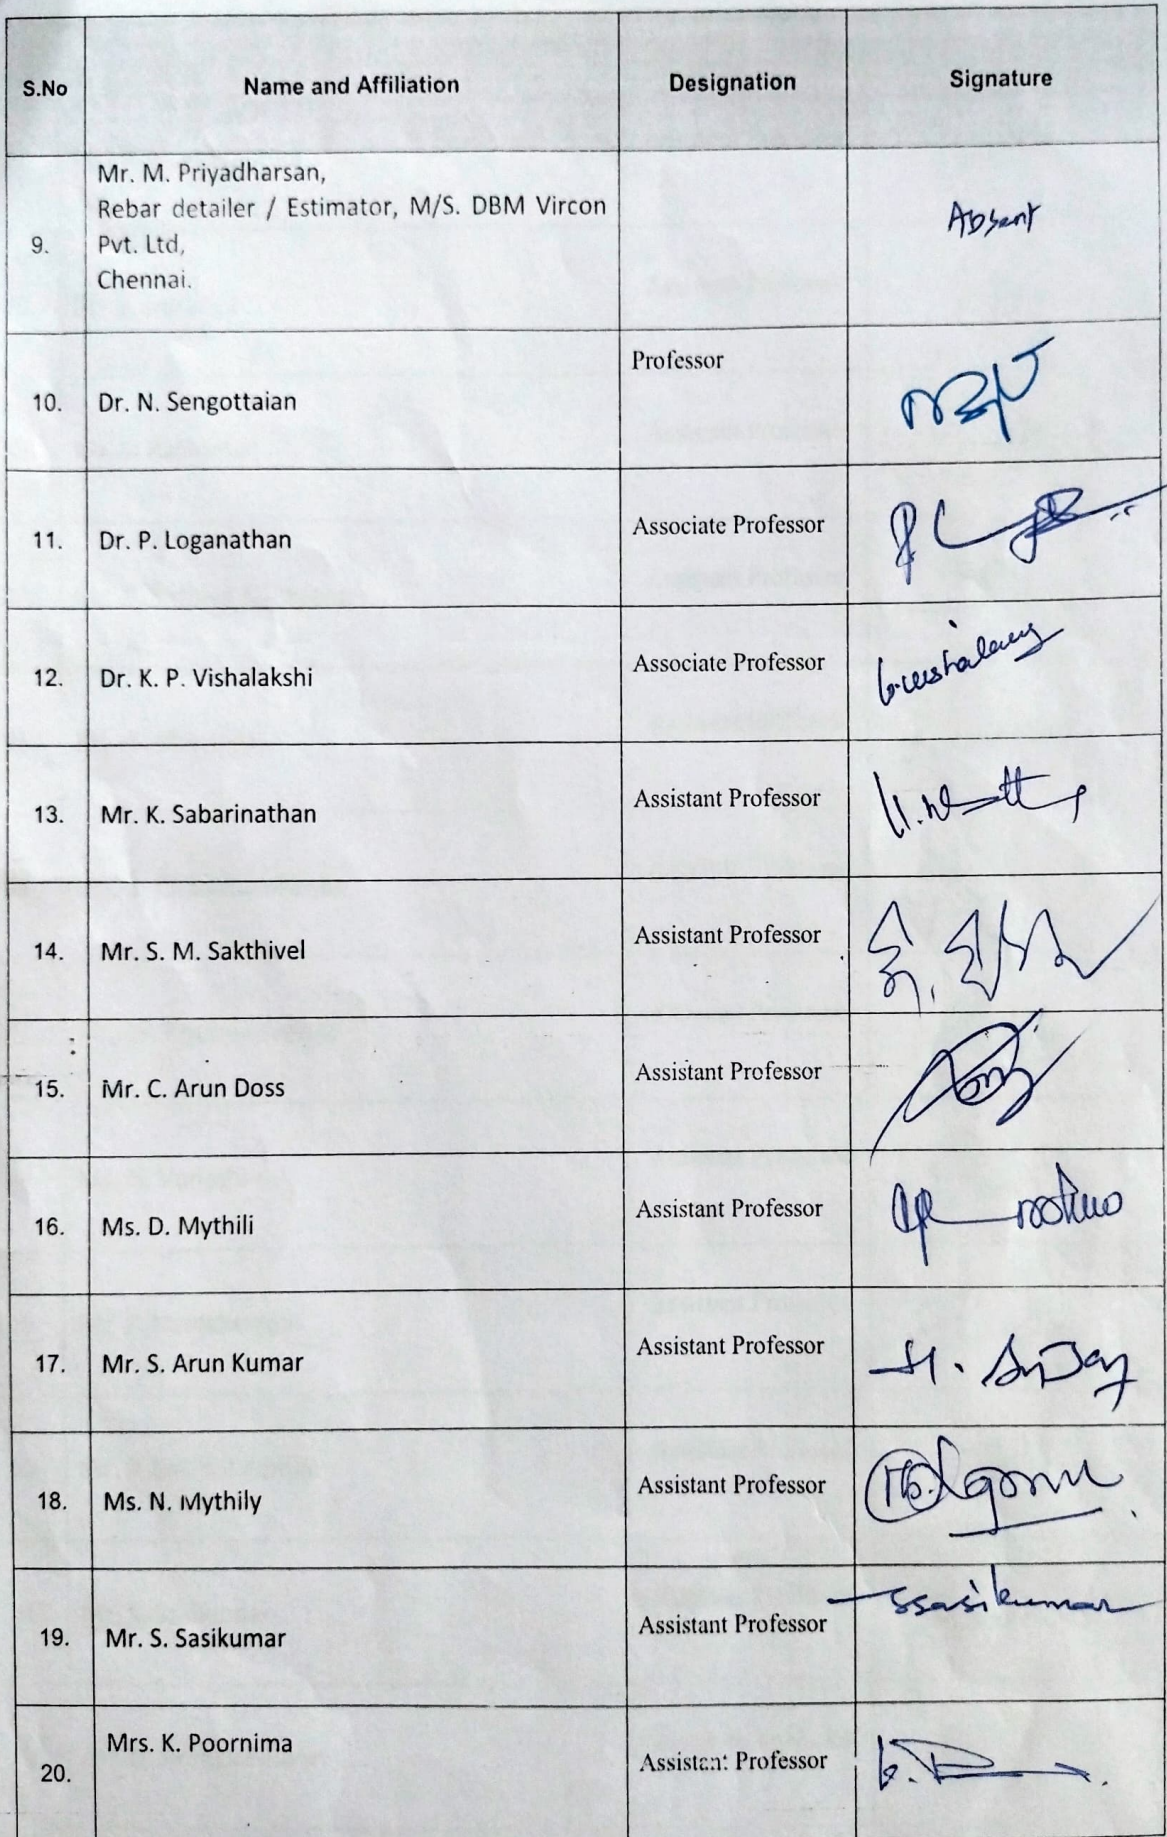 S.No Name and Affiliation Designation Signature
Mr. M. Priyadharsan,
Rebar detailer / Estimator, M/S. DBM Vircon
9. Pvt. Ltd, Absent
Chennai.
Professor
10. Dr. N. Sengottaian
11. Dr. P. Loganathan Associate Professor
12. Dr. K. P. Vishalakshi Associate Professor
13. Mr. K. Sabarinathan Assistant Professor
14. Mr. S. M. Sakthivel Assistant Professor
15. Mr. C. Arun Doss Assistant Professor
16. Ms. D. Mythili Assistant Professor
17. Mr. S. Arun Kumar Assistant Professor
18. Ms. N. Mythily Assistant Professor
19. Mr. S. Sasikumar Assistant Professor SSasikumar
Mrs. K. Poornima
20. Assistant Professor